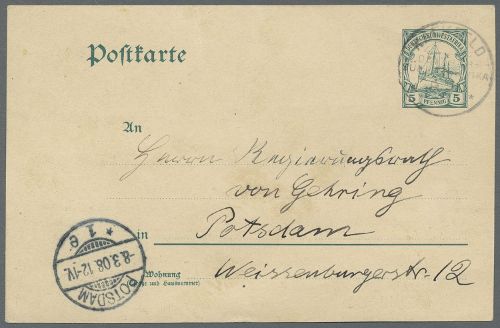 Postkarte
DEUTSCH-SÜDWESTAFRIKA
5 PFENNIG 5
An
Herrn Regierungsrath
von Gehring
in Potsdam
Wohnung
(Straße und Hausnummer)
Weissenburgerstr. 12
* 1 e
-8.3.08.12-1V.
POTSDAM